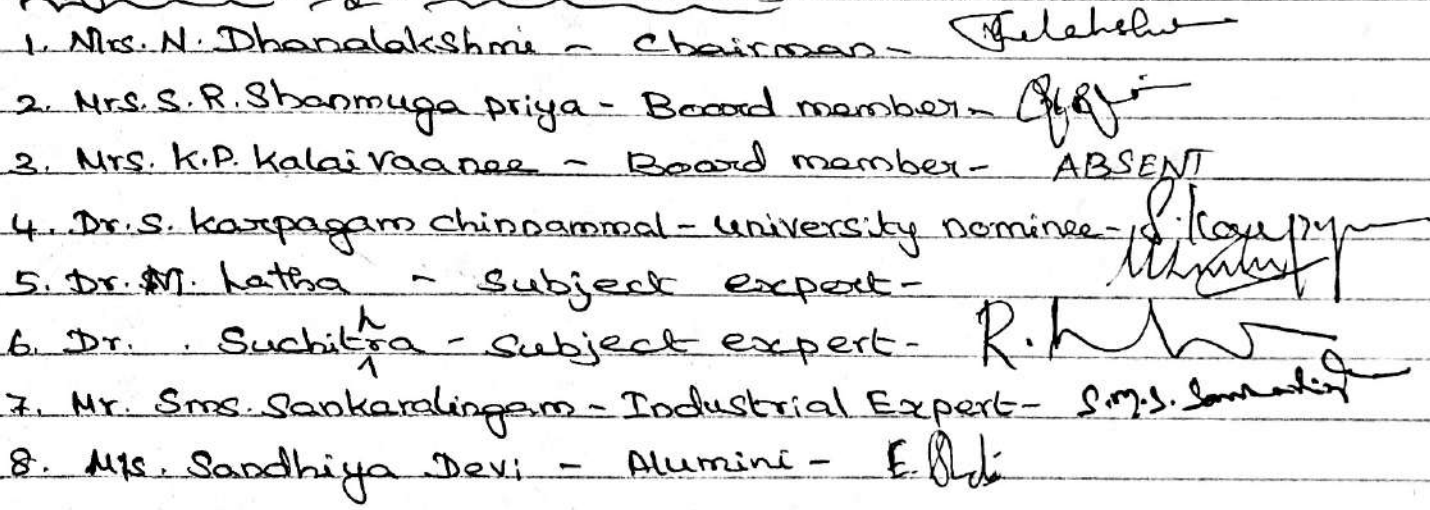 1. Mrs. N. Dhanalakshmi - Chairman -
2. Mrs. S. R. Shanmuga priya - Board member -
3. Mrs. K.P. Kalaivaanee - Board member - ABSENT
4. Dr. S. Karpagam chinnammal - university nominee -
5. Dr. M. Latha - Subject expert -
6. Dr. . Suchithra - Subject expert -
7. Mr. Sms. Sankaralingam - Industrial Expert -
8. Ms. Sandhiya Devi - Alumini -